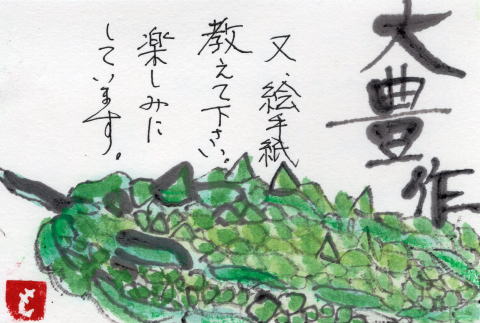 大豊作
又、絵手紙
教えて下さい。
楽しみに
しています。
と